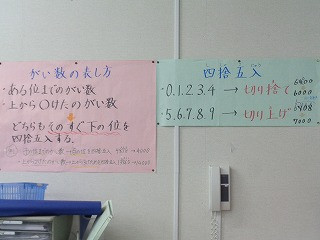 がい数の表し方
・ある位までのがい数
・上から〇けたのがい数
どちらもそのすぐ下の位を
四捨五入する。
四捨五入
・0.1.2.3.4 → 切り捨て
・5.6.7.8.9 → 切り上げ
6400
6000
7000